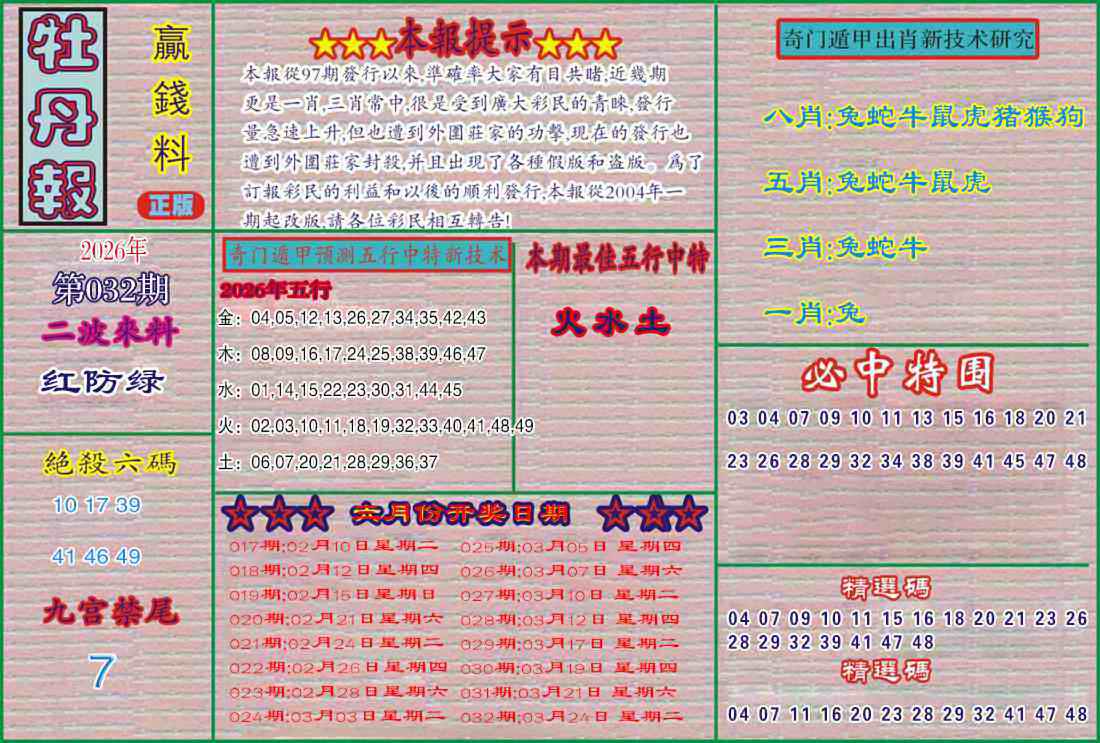 牡丹報
贏錢料
正版
★★★本報提示★★★
本報從97期發行以來,準確率大家有目共睹,近幾期
更是一肖,三肖常中,很是受到廣大彩民的青睞,發行
量急速上升,但也遭到外圍莊家的功擊,現在的發行也
遭到外圍莊家封殺,并且出現了各種假版和盗版。爲了
訂報彩民的利益和以後的順利發行,本報從2004年一
期起改版,請各位彩民相互轉告!
奇门遁甲出肖新技术研究
八肖:兔蛇牛鼠虎猪猴狗
五肖:兔蛇牛鼠虎
三肖:兔蛇牛
一肖:兔
2026年
第032期
二波來料
红防绿
奇门遁甲预测五行中特新技术
2026年五行
金：04,05,12,13,26,27,34,35,42,43
木：08,09,16,17,24,25,38,39,46,47
水：01,14,15,22,23,30,31,44,45
火：02,03,10,11,18,19,32,33,40,41,48,49
土：06,07,20,21,28,29,36,37
本期最佳五行中特
火水土
必中特围
03 04 07 09 10 11 13 15 16 18 20 21
23 26 28 29 32 34 38 39 41 45 47 48
絕殺六碼
10 17 39
41 46 49
九宫禁尾
7
六月份开奖日期
017期:02月10日星期二 025期:03月05日 星期四
018期:02月12日星期四 026期:03月07日 星期六
019期:02月15日星期日 027期:03月10日 星期二
020期:02月21日星期六 028期:03月12日 星期四
021期:02月24日星期二 029期:03月17日 星期二
022期:02月26日星期四 030期:03月19日 星期四
023期:02月28日星期六 031期:03月21日 星期六
024期:03月03日星期二 032期:03月24日 星期二
精選碼
04 07 09 10 11 15 16 18 20 21 23 26
28 29 32 39 41 47 48
精選碼
04 07 11 16 20 23 28 29 32 41 47 48